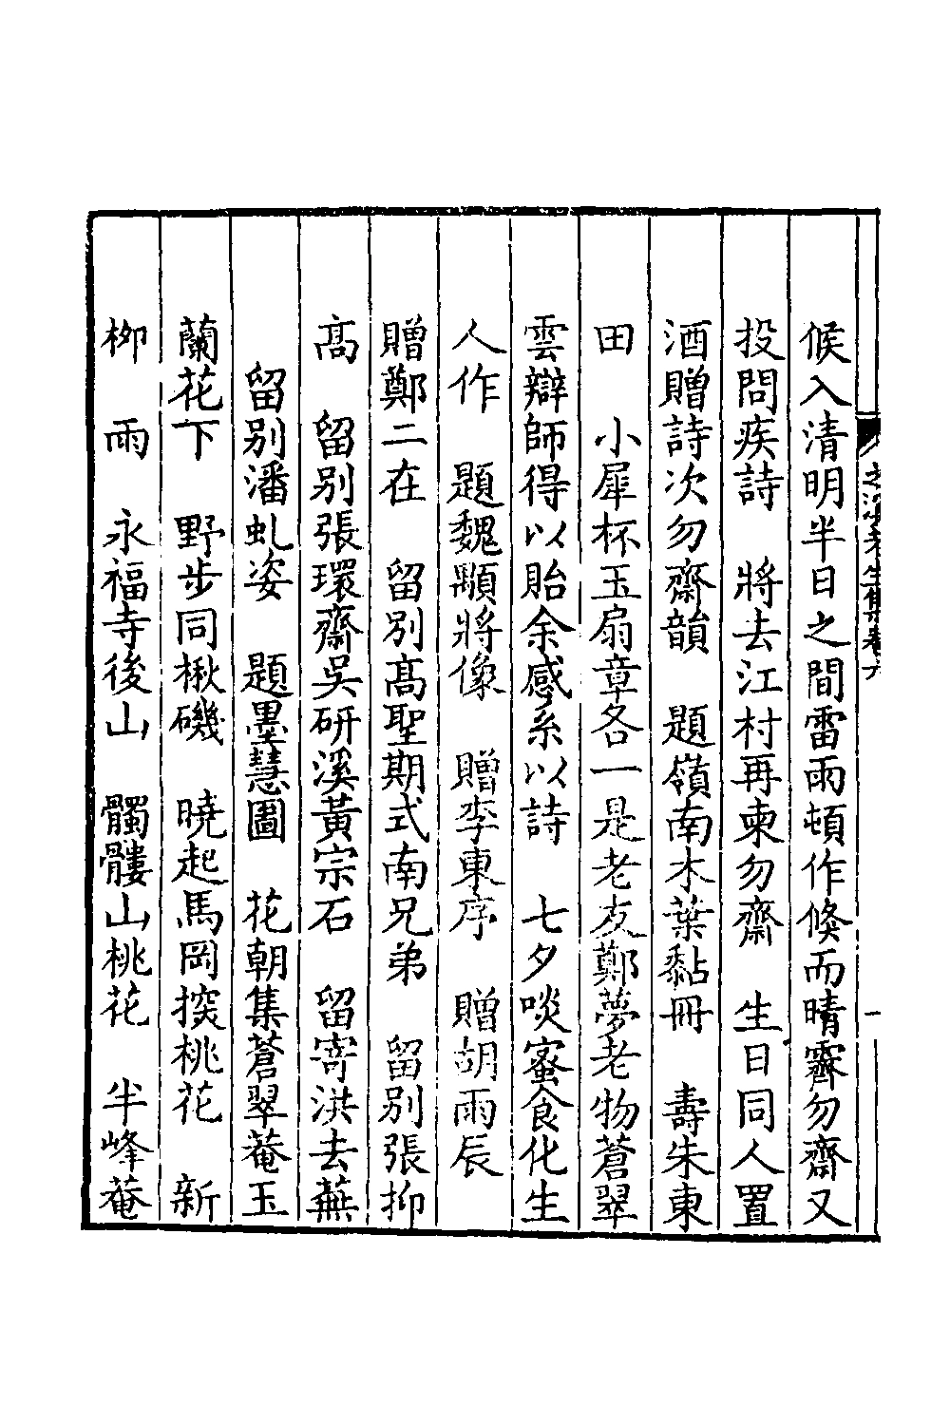 之溪老生集卷六
一
候入清明半日之間雷雨頓作倏而晴霽勿齋又
投問疾詩　將去江村再柬勿齋　生日同人置
酒贈詩次勿齋韻　題嶺南木葉黏冊　壽朱東
田　小犀杯玉扇章各一是老友鄭夢老物蒼翠
雲辯師得以貽余感系以詩　七夕啖蜜食化生
人作　題魏顒將像　贈李東序　贈胡雨辰
贈鄭二在　留別髙聖期式南兄弟　留別張抑
髙　留別張環齋吳研溪黃宗石　留寄洪去蕪
留別潘虬姿　題墨慧圖　花朝集蒼翠菴玉
蘭花下　野步同楸磯　曉起馬岡探桃花　新
栁　雨　永福寺後山　髑髏山桃花　半峰菴